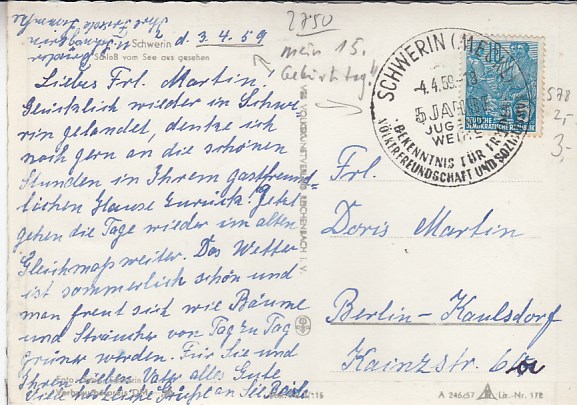 2750
Schwerin d. 3.4.59
Schloß vom See aus gesehen
mein 15.
Geburtstag!!
Liebes Frl. Martin,
Glücklich wieder in Schwe-
rin gelandet, denke ich
noch gern an die schönen
Stunden in Ihrem gastfreund-
lichen Hause zurück. Jetzt
gehen die Tage wieder im alten
Gleichmaß weiter. Das Wetter
ist sommerlich schön und
man freut sich wie Bäume
und Sträucher von Tag zu Tag
grüner werden. Für Sie und
Ihren lieben Vater alles Gute
Viele herzliche Grüße an Sie Beide
SCHWERIN (MECKL)
-4.4.59-18
5 JAHRE
JUGEND
WEIHE
BEKENNTNIS FÜR
VÖLKERFREUNDSCHAFT UND SOZIALISMUS
DEUTSCHE
DEMOKRATISCHE REPUBLIK
578
2,-
3,-
VEB VOLKSKUNSTVERLAG REICHENBACH I. V.
Frl.
Doris Martin
Berlin-Kaulsdorf
Kainzstr.
A 246/57
Lit.-Nr. 172